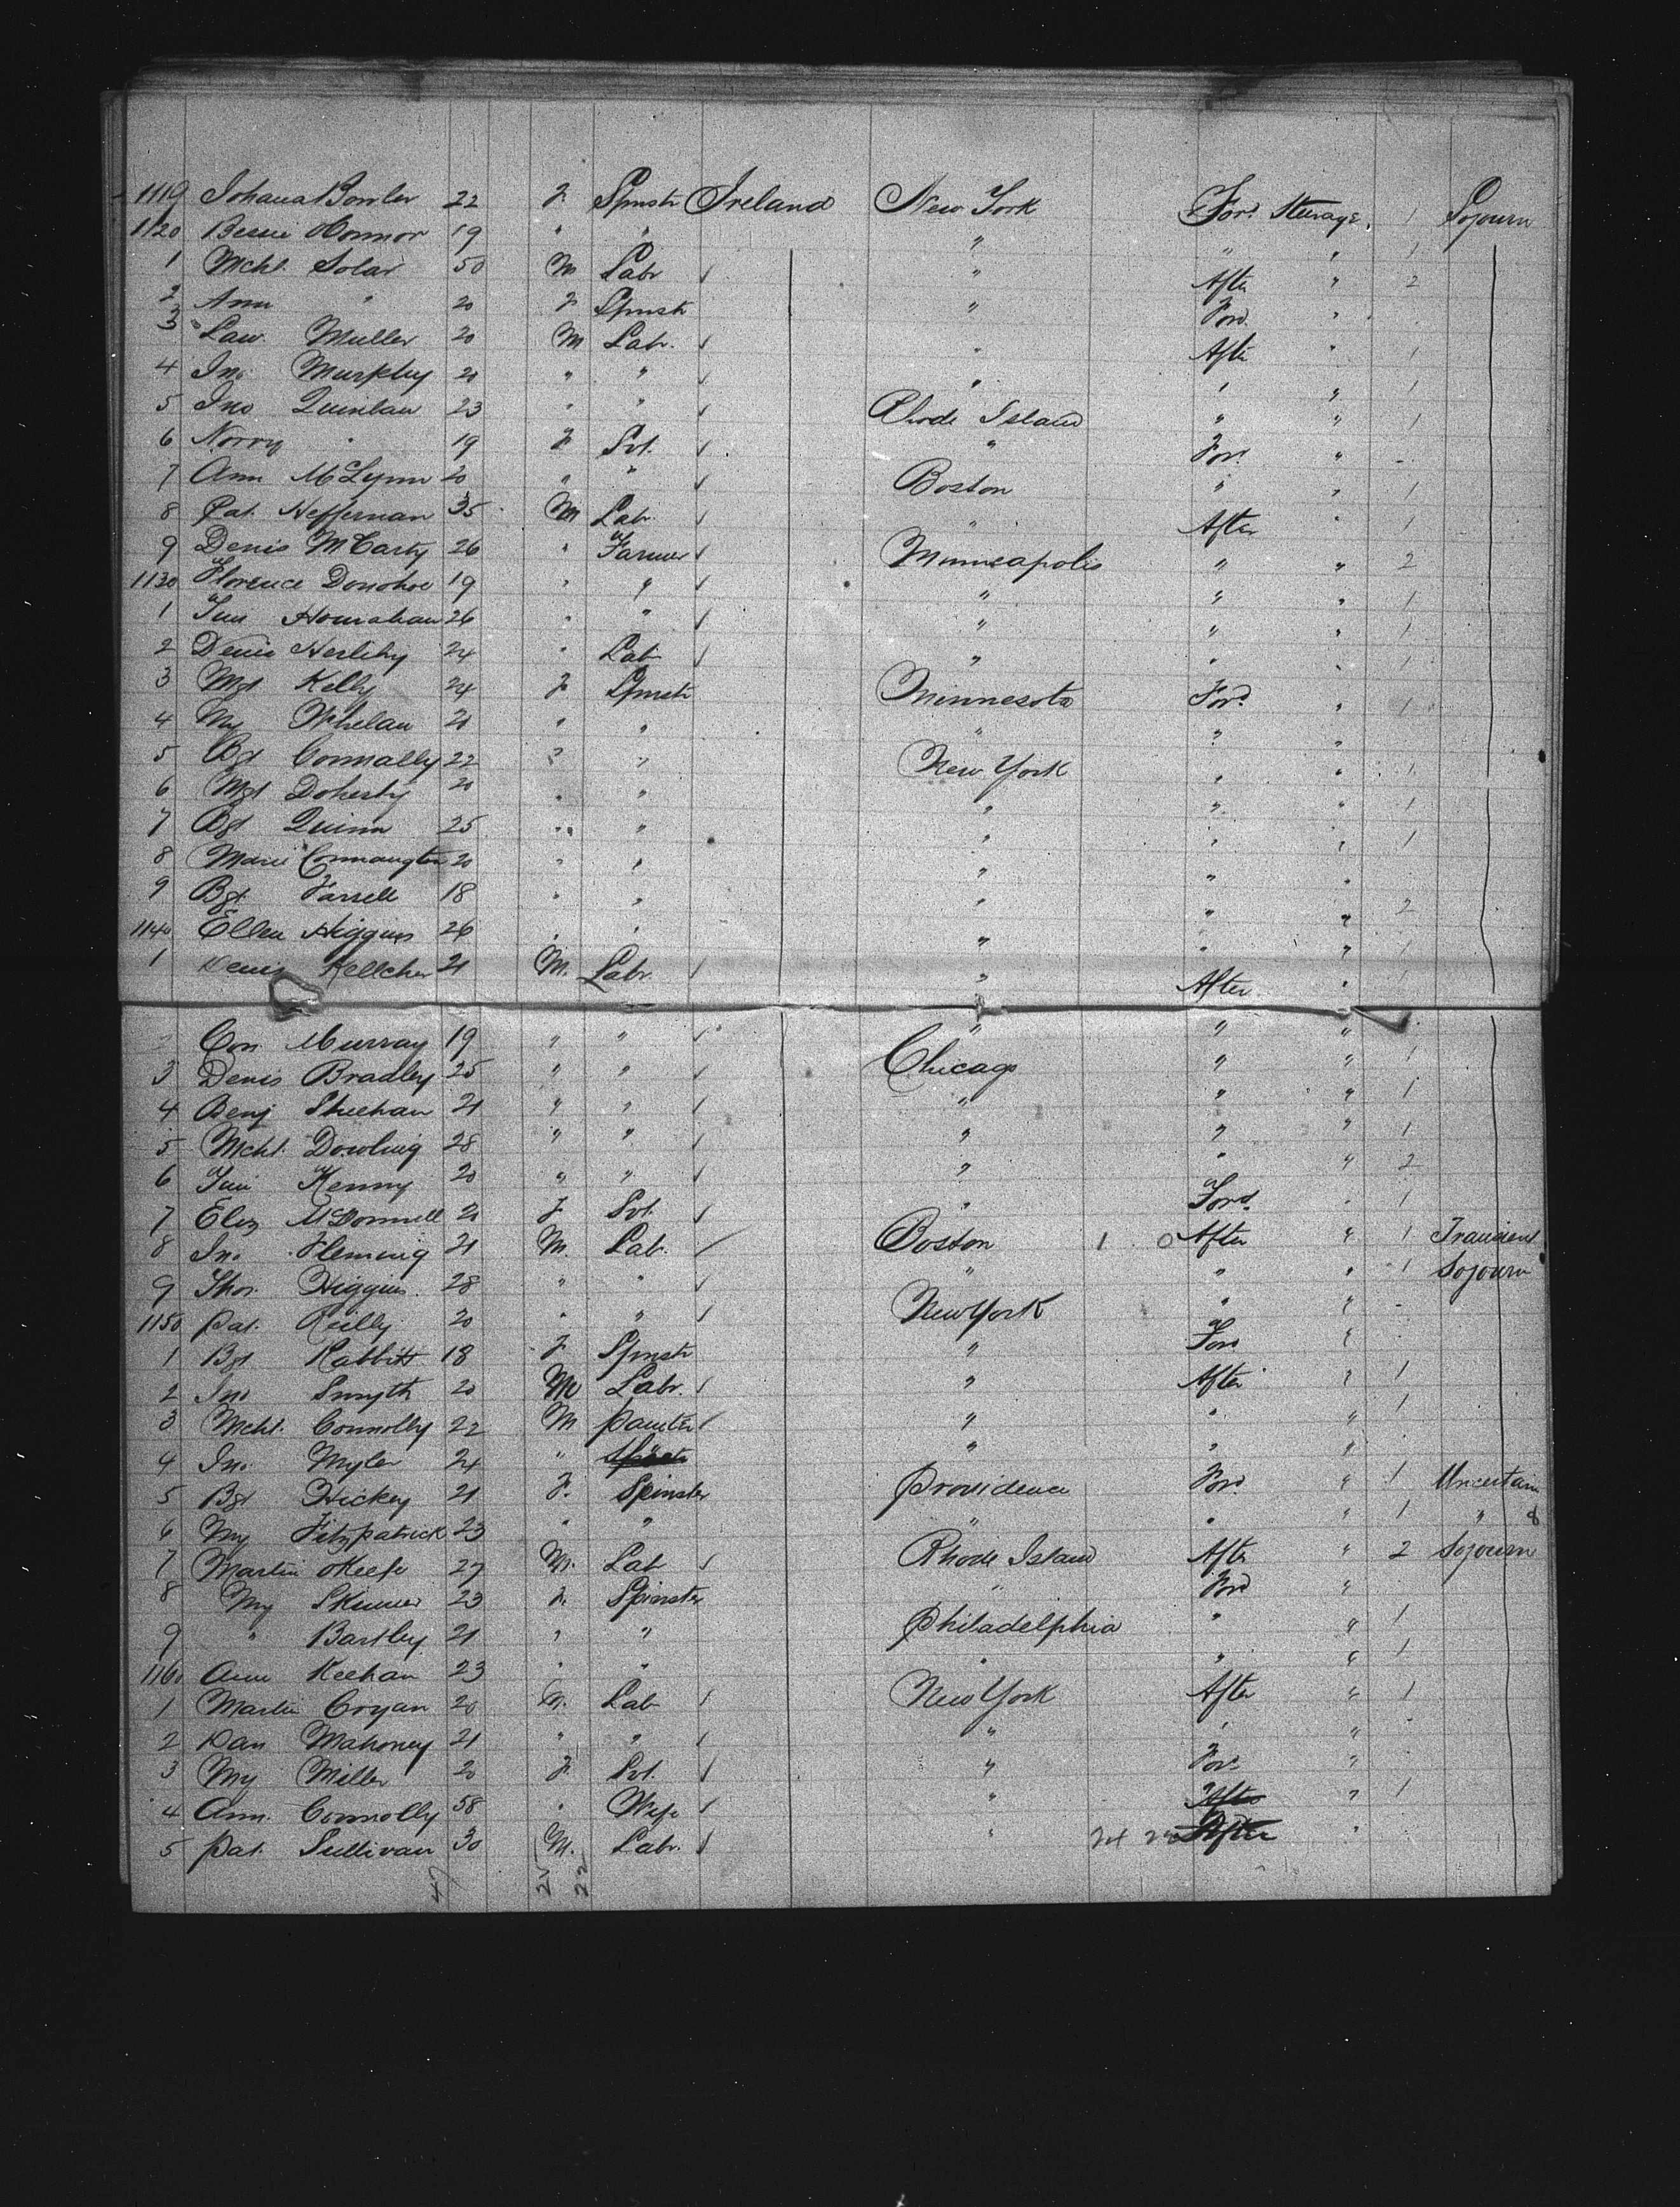 1119 Johana Bowler 22 F Spnstr Ireland New York Ford. Steerage, 1 Sojourn
1120 Bessie OConnor 19 " " " " " 1
1 Mchl. Solar 50 M Labr " After " 2
2 Ann " 20 F Spnstr " Ford. "
3 Law. Muller 20 M Labr. " After " 1
4 Jno. Murphy 20 " " " " " 1
5 Jno Quinlan 23 " " Rhode Island " " 1
6 Norry " 19 F Svt. " Ford. " -
7 Ann McLynn 20 " " Boston " " 1
8 Pat. Heffernan 35 M Labr. " After " 1
9 Denis McCarty 26 " Farmer Minneapolis " " 2
1130 Florence Donohoe 19 " " " " " 1
1 Tim Hourahan 26 " " " " " 1
2 Denis Herlihy 24 " Labr " " " 1
3 Mgt Kelly 24 F Spnstr Minnesota Ford. " 1
4 My Whelan 20 " " " " "
5 Bgt Connally 22 " " New York " " 1
6 Mgt Doherty 20 " " " " " 1
7 Bgt Quinn 25 " " " " " 1
8 Marie Connaugton 20 " " " " "
9 Bgt. Farrell 18 " " " " " 2
1140 Ellen Higgins 26 " " " " " 1
1 Denis Kelleher 21 M. Labr. " After " 1
Con Murray 19 " " " " "
3 Denis Bradley 25 " " Chicago " " 1
4 Benj Sheehan 21 " " " " " 1
5 Mchl. Dowling 28 " " " " " 1
6 Tim Kenny 20 " " " " " 2
7 Eliz McDonnell 20 F Svt. " Ford. " 1
8 Jno. Fleming 21 M. Lab. Boston 1 0 After " 1 Transient
9 Thos. Higgins 28 " " " " " 1 Sojourn
1150 Pat. Reilly 20 " " New York " " -
1 Bgt Rabbitt 18 F Spnstr " Ford "
2 Jno Smyth 20 M Labr. " After " 1
3 Mchl. Connolly 22 M painter " " " 1
4 Jno. Myler 24 " " " "
5 Bgt Hickey 21 F. Spinster Providence Ford. " 1 Uncertain
6 My Fitzpatrick 23 " " " " " 1 "
7 Martin OKeefe 27 M. Lab Rhode Island After " 2 Sojourn
8 My Skinner 23 F. Spinster " Ford "
9 " Bartley 21 " " Philadelphia " " 1
1160 Ann Keehan 23 " " " " " 1
1 Martin Cryan 20 M. Lab New York After " 1
2 Dan Mahoney 21 " " " " " -
3 My Miller 20 F Svt. " Ford. "
4 Ann. Connolly 58 " Wife " After " 1
5 Pat. Sullivan 30 M. Labr. " 24 After "
47 25 22